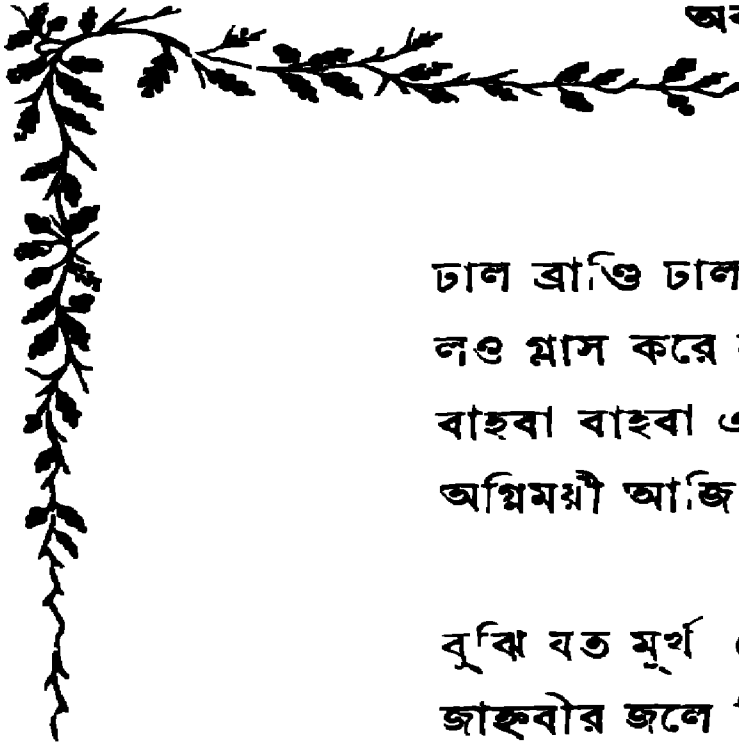 ঢাল ব্রাণ্ডি ঢাল
লও গ্লাস করে
বাহবা বাহবা
অগ্নিময়ী আজি
বুঝি যত মূর্খ
জাহ্নবীর জলে